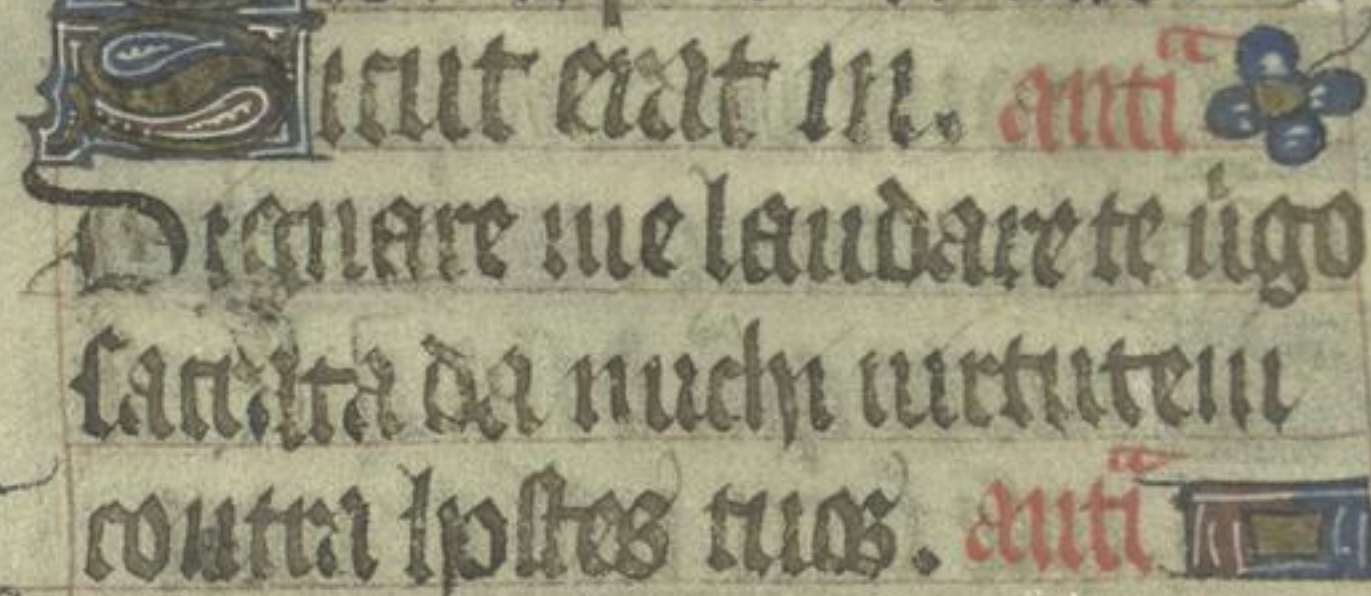 Sicut erat in. antiᵃ
Dignare me laudare te uͥgo
sacrata da michi uirtutem
contra hostes tuos. antiᵃ